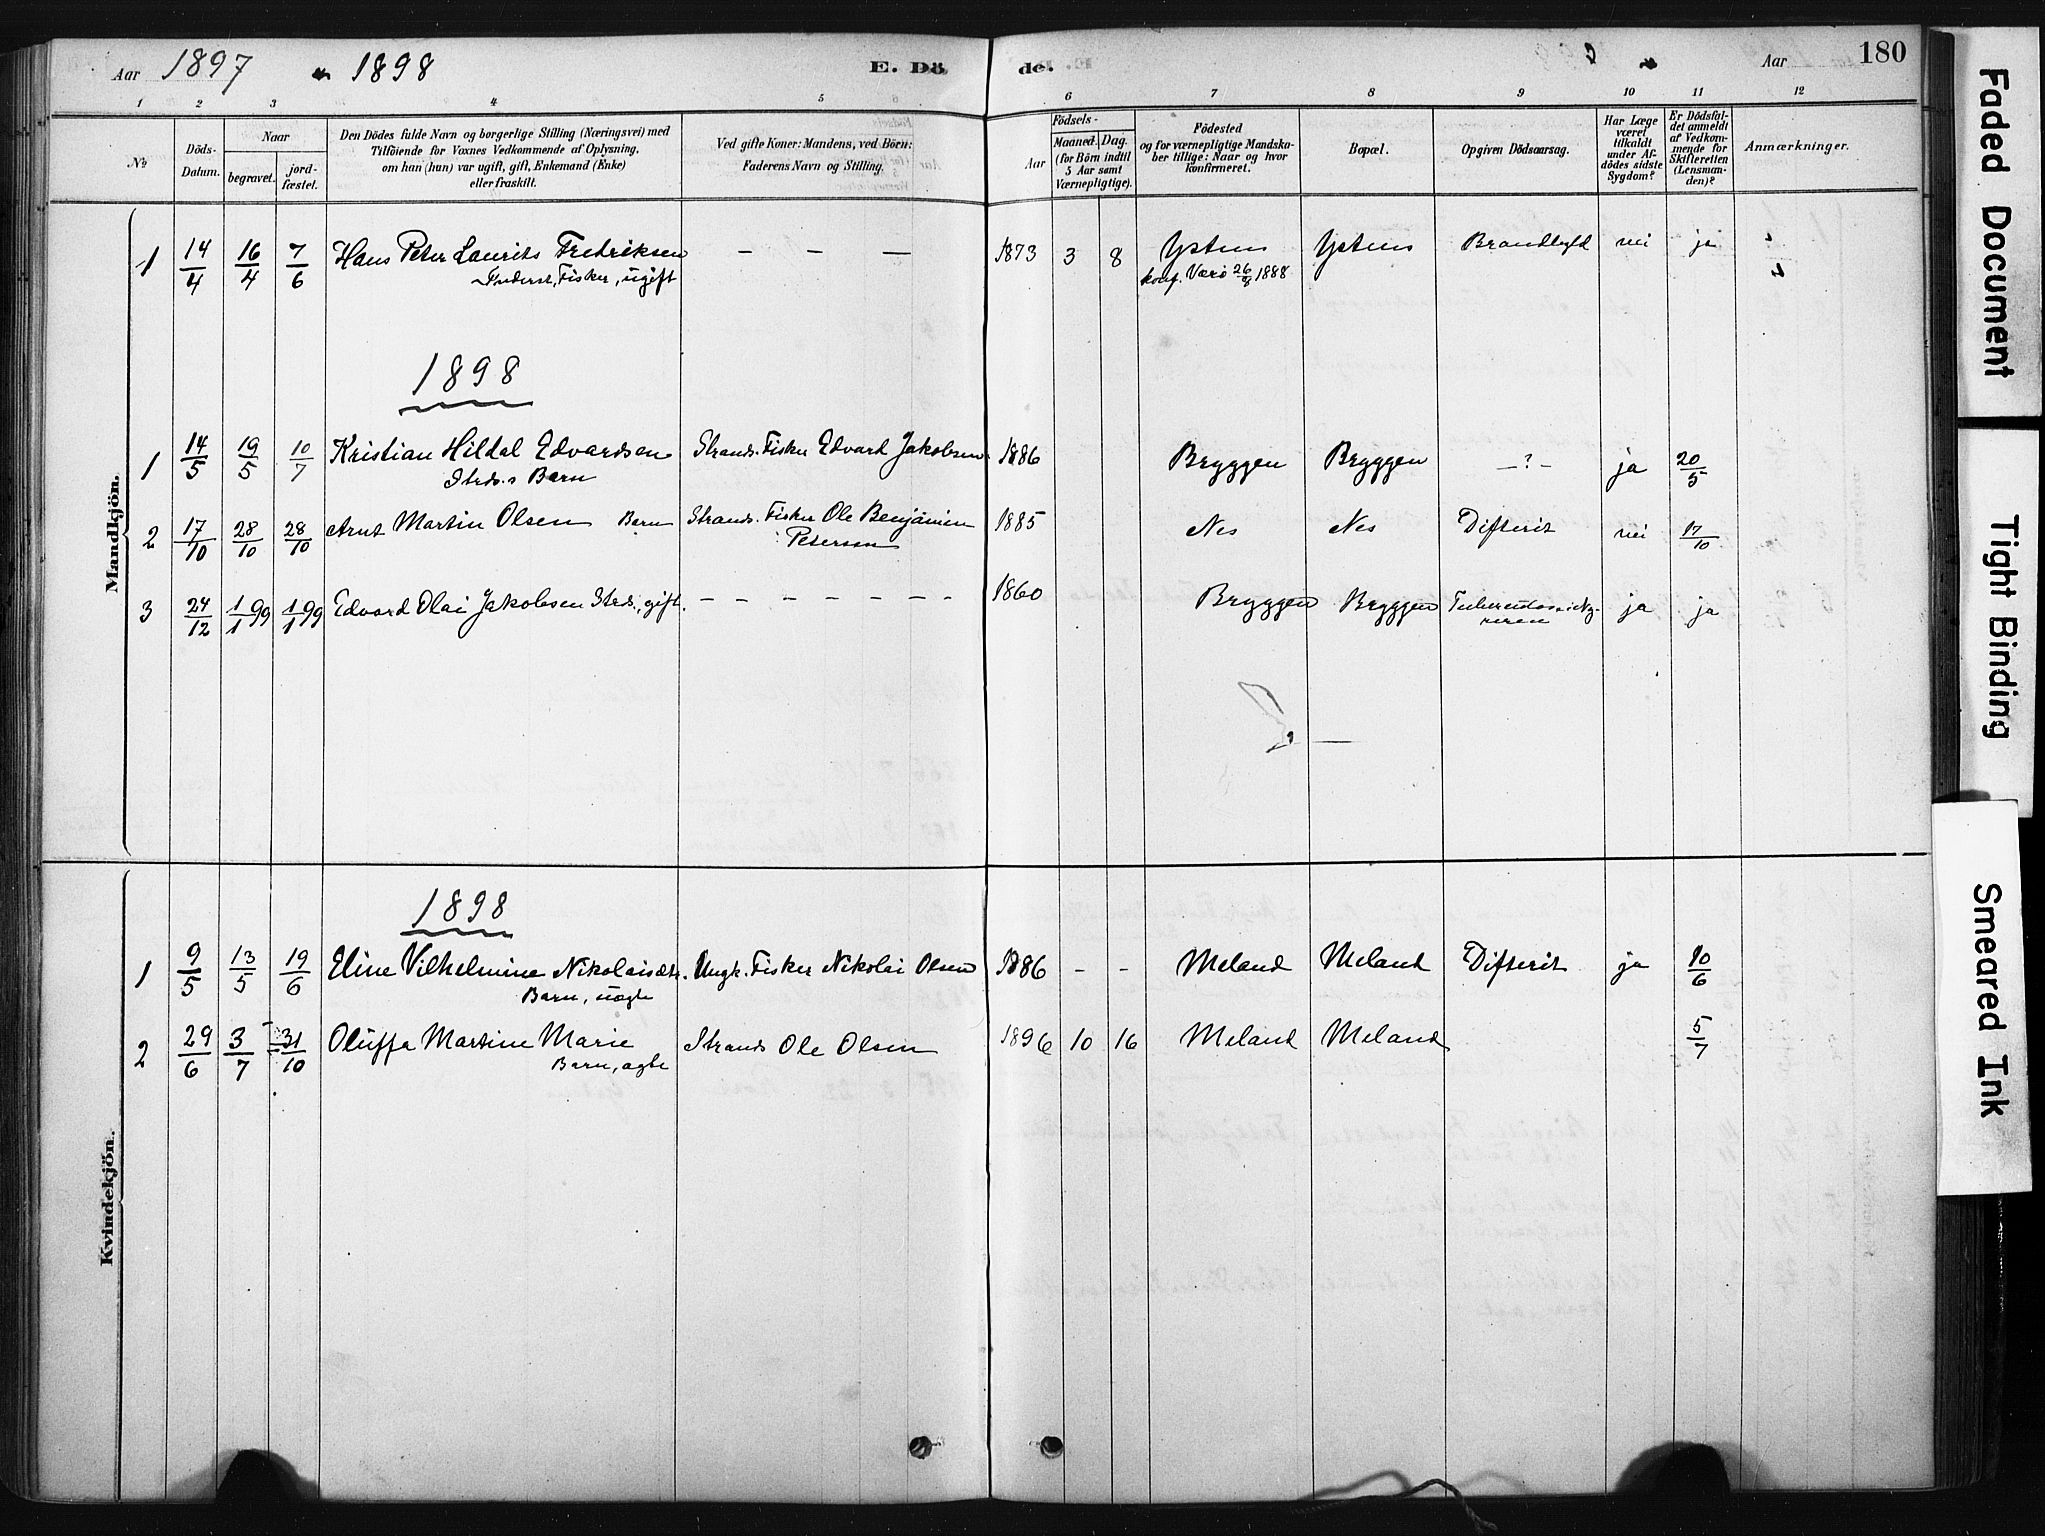 Aar 1897 1898 E. Dö de. Aar 180
1 2 3 4 5 6 7 8 9 10 11 12
№
Döds-
Datum.
Naar
begravet.
jord-
fæstet.
Den Dödes fulde Navn og borgerlige Stilling (Næringsvei) med
Tilföiende for Voxnes Vedkommende af Oplysning,
om han (hun) var ugift, gift, Enkemand (Enke)
eller fraskilt.
Ved gifte Koner: Mandens, ved Börn:
Faderens Navn og Stilling.
Födsels-
Aar
Maaned. Dag.
(for Börn indtil
5 Aar samt
Værnepligtige).
Födested
og for værnepligtige Mandska-
ber tillige: Naar og hvor
konfirmeret.
Bopæl.
Opgiven Dödsaarsag.
Har Læge
været
tilkaldt
under Af-
dödes sidste
Sygdom?
Er Dödsfal-
det anmeldt
af Vedkom-
mende for
Skifteretten
(Lensman-
den)?
Anmærkninger.
Mandkjön.
1 14/4 16/4 7/6 Hans Peter Laurits Fredriksen – – – 1873 3 8 Ystnes Ystnes Brandbyld nei ja
Fisker, ugift konf. Værö 26/8 1888
1898
1 14/5 19/5 10/7 Kristian Hildal Edvardsen Strands. Fisker Edvard Jakobsen 1886 Bryggen Bryggen –?– ja 20/5
Strds.s Barn
2 17/10 28/10 28/10 Arnt Martin Olsen Barn Strands. Fisker Ole Benjamin 1885 Nes Nes Difterit nei 17/10
Petersen
3 24/12 1/1 99 1/1 99 Edvard Olai Jakobsen Strds., gift. – – – – – – – 1860 Bryggen Bryggen Tuberculose i Ny- ja ja
reren
Kvindekjön.
1898
1 9/5 13/5 19/6 Eline Vilhelmine Nikolaisdtr. Ungk. Fisker Nikolai Olsen 1886 - - Meland Meland Difterit ja 10/6
Barn, uægte
2 29/6 3/7 31/10 Oluffa Martine Marie Strands Ole Olsen 1896 10 16 Meland Meland 5/7
Barn, ægte
Faded Document
Tight Binding
Smeared Ink